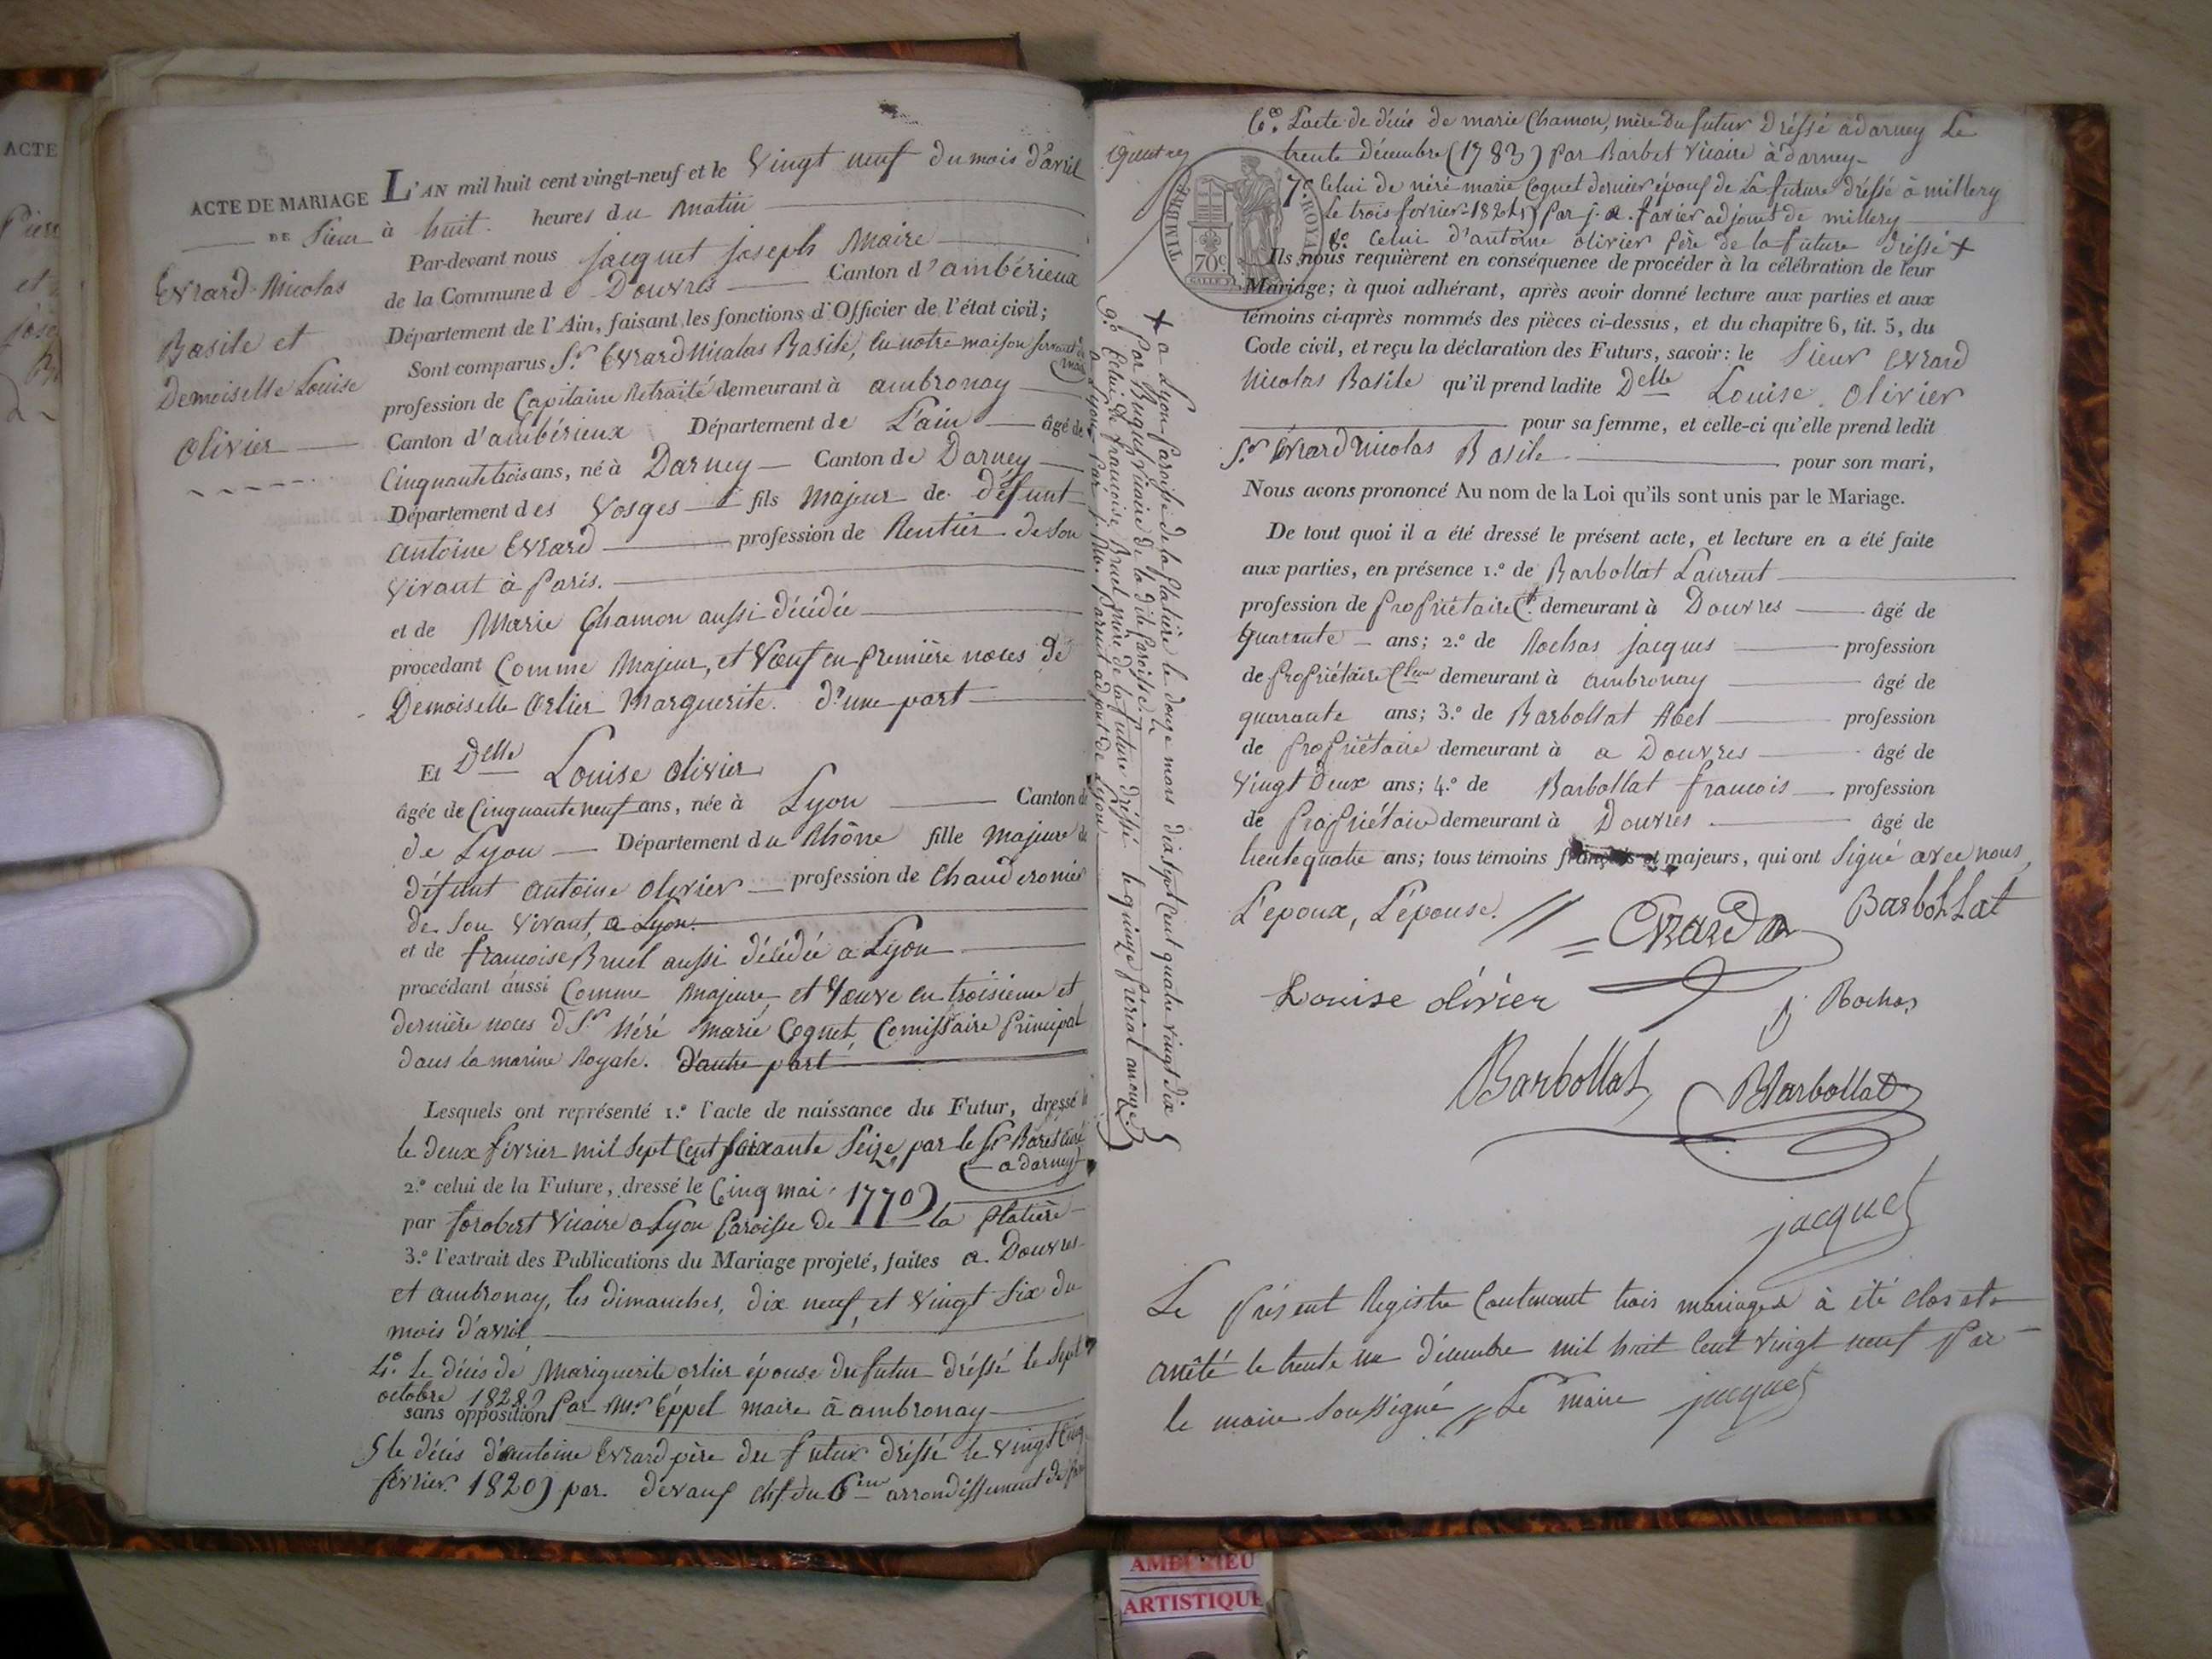 ACTE
ACTE DE MARIAGE
DE Sieur
Evrard Nicolas
Basile et
Demoiselle Louise
Olivier
L'AN mil huit cent vingt-neuf et le Vingt neuf du mois d'avril
à huit heures du Matin
Par-devant nous jacquet joseph Maire
de la Commune de Douvres Canton d'ambérieux
Département de l'Ain, faisant les fonctions d'Officier de l'état civil;
Sont comparus Sr. Evrard Nicolas Basile, en notre maison servant de
mairie
profession de Capitaine Retraité demeurant à ambronay
Canton d'ambérieux Département de L'ain âgé de
Cinquante trois ans, né à Darney Canton de Darney
Département des Vosges fils Majeur de défunt
antoine Evrard profession de Rentier de son
vivant à Paris.
et de Marie Chamon aussi décédée
procedant Comme Majeur, et Veuf en première noces de
Demoiselle Orlier Marguerite. D'une part
Et Delle Louise Olivier
âgée de Cinquante neuf ans, née à Lyon Canton de
de Lyon Département du Rhône fille majeure de
défunt antoine Olivier profession de Chaudronier
de son vivant, a Lyon.
et de francoise Bruel aussi décédée a Lyon
procédant aussi Comme Majeure, et Veuve en troisieme et
dernière noces d Sr. Néré marie Coquet, Comissaire Principal
dans la marine Royale. D'autre part
Lesquels ont représenté 1.° l'acte de naissance du Futur, dressé le
le deux février mil sept Cent soixante Seize, par le Sr. Baret Curé
a darney
2.° celui de la Future, dressé le Cinq mai 1770)
par forobert Vicaire a Lyon Paroisse de la Platière
3.° l'extrait des Publications du Mariage projeté, faites a Douvres
et ambronay, les dimanches, dix neuf, et vingt six du
mois d'avril
4.° Le décès de Mariguerite orlier épouse du futur dréssé le sept
octobre 1828)
sans opposition Par Mr. Eppel maire à ambronay
5 le décès d'antoine Evrard père du futur dréssé le vingt Cinq
février 1820) par devauf du 6eme arrondissement de
6.° L'acte de décès de marie Chamon, mère Du futur Dréssé a darney Le
trente Décembre (1783) Par Barbet Vicaire à darney
7.° Celui de néré marie Coquet dernier époux de La future dréssé à millery
Le trois fevrier 1824) par j. a. favier adjoint de millery
8.° Celui d'antoine olivier Père de la future dréssé +
TIMBRE ROYAL
70c
+ a Lyon Paroisse de la Platière le douze mars dix sept Cent quatre vingt dix
Par Vicaire de la dite Paroisse.
9.° Celui de francoise Bruel mère de la future dréssé le quinze Prérial an onze
a Lyon, Par adjoint de Lyon
Ils nous requièrent en conséquence de procéder à la célébration de leur
Mariage; à quoi adhérant, après avoir donné lecture aux parties et aux
témoins ci-après nommés des pièces ci-dessus, et du chapitre 6, tit. 5, du
Code civil, et reçu la déclaration des Futurs, savoir: le Sieur Evrard
Nicolas Basile qu'il prend ladite Delle Louise Olivier
pour sa femme, et celle-ci qu'elle prend ledit
Sr. Evrard Nicolas Basile pour son mari,
Nous avons prononcé Au nom de la Loi qu'ils sont unis par le Mariage.
De tout quoi il a été dressé le présent acte, et lecture en a été faite
aux parties, en présence 1.° de Barbollat Laurent
profession de Propriétaire Ct. demeurant à Douvres âgé de
Quarante ans; 2.° de Rochas jacques profession
de Propriétaire demeurant à ambronay âgé de
quarante ans; 3.° de Barbollat Abel profession
de Propriétaire demeurant à a Douvres âgé de
Vingt Deux ans; 4.° de Barbollat francois profession
de Propriétaire demeurant à Douvres âgé de
trente quatre ans; tous témoins français et majeurs, qui ont Signé avec nous,
L'epoux, L'épouse. // = Evrard Barbollat
Louise olivier
j Rochas
Barbollat Barbollat
jacquet
Le Présent Registre Contenant trois mariages à été clos et
arrêté le trente un décembre mil huit Cent Vingt neuf Par
le maire Soussigné // Le maire jacquet
AMBERIEU
ARTISTIQUE